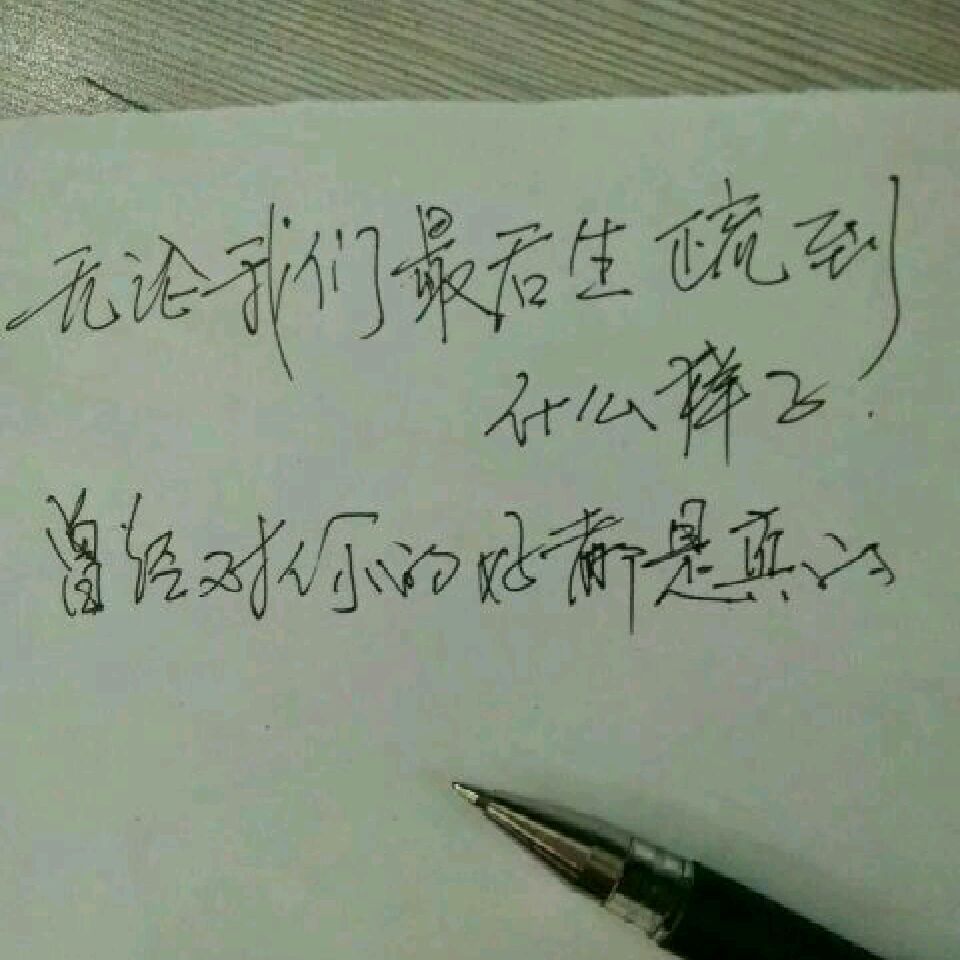 无论我们最后生疏到
什么样子.
曾经对你的好都是真的